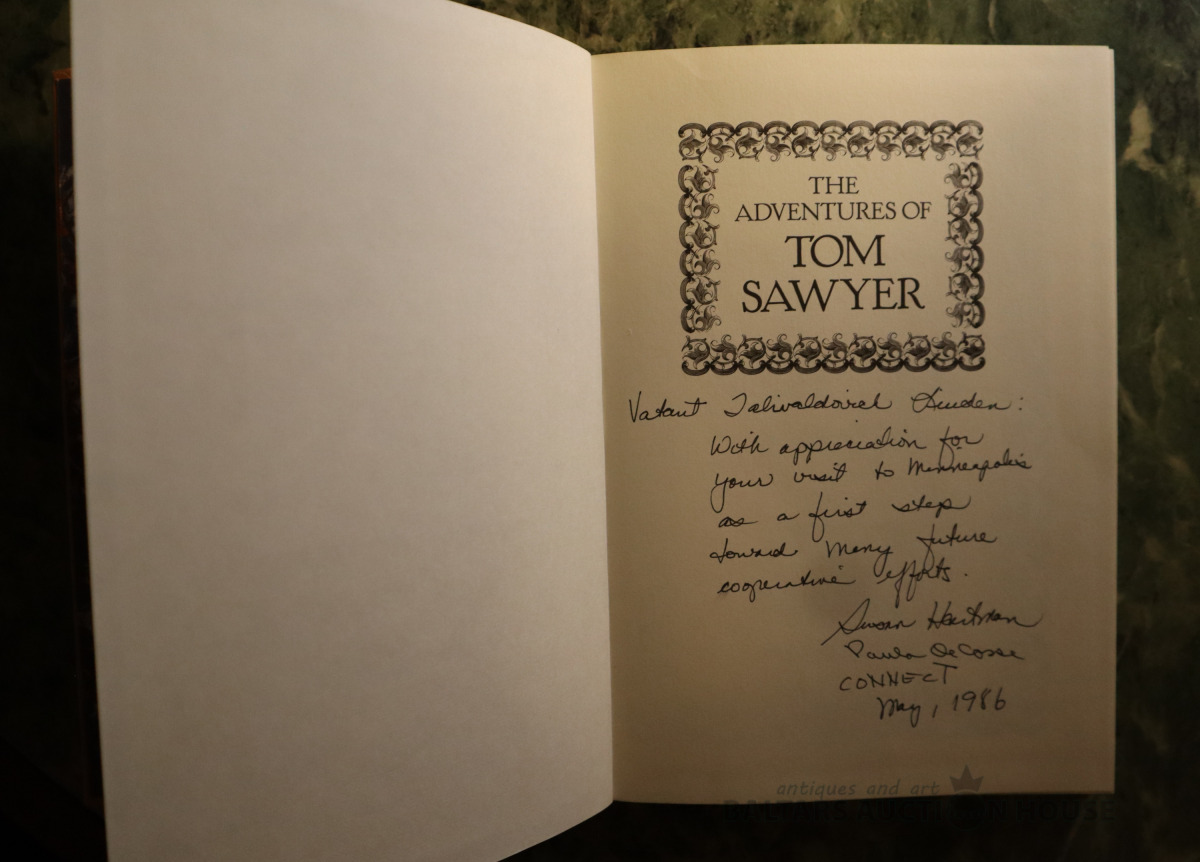 THE
ADVENTURES OF
TOM
SAWYER
With appreciation for
your visit to Minneapolis
as a first step
toward many future
cooperative efforts.
Susan Hartman
Paula DeCosse
CONNECT
May, 1986
antiques and art
BALTARS AUCTION HOUSE